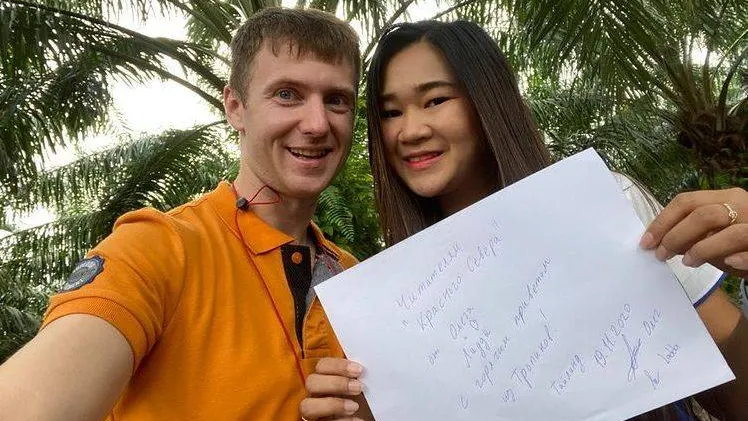 Читателям
"Красного Севера"
от Олега
Лидди
с горячим приветом
из Тропиков!
Таиланд 19.11.2020